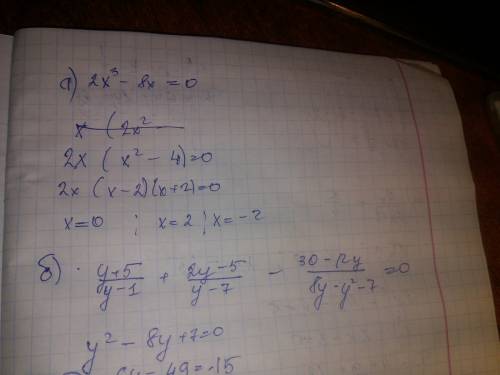 а) 2x³ - 8x = 0
x (2x²
2x (x² - 4)=0
2x (x-2)(x+2)=0
x=0 ; x=2 ; x=-2
б) (y+5)/(y-1) + (2y-5)/(y-7) - (30-12y)/(8y-y²-7) =0
y² - 8y+7=0